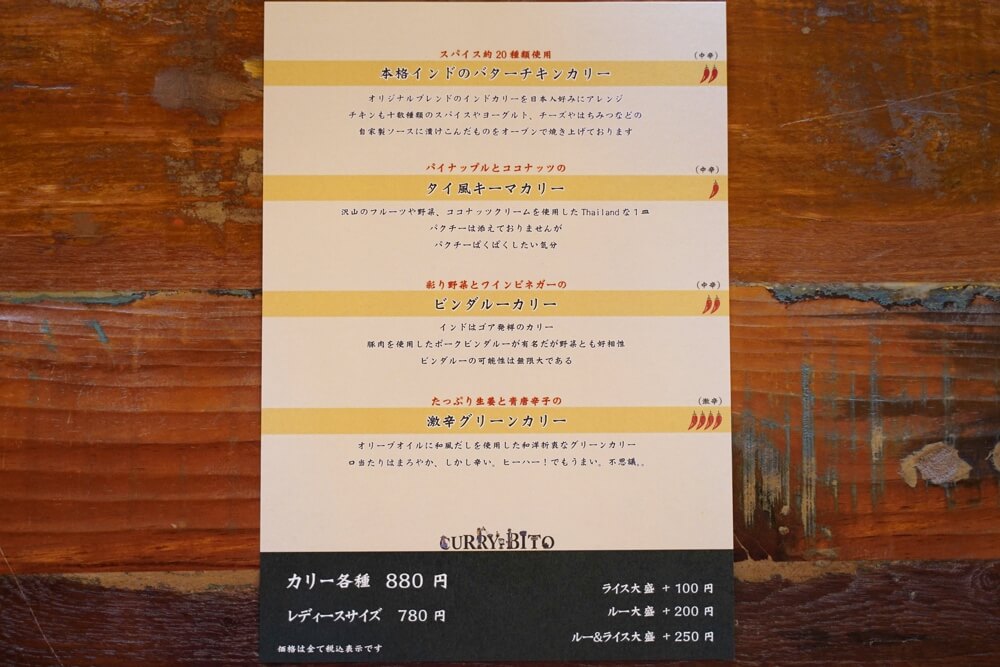 スパイス約20種類使用
(中辛)
本格インドのバターチキンカリー
オリジナルブレンドのインドカリーを日本人好みにアレンジ
チキンも十数種類のスパイスやヨーグルト、チーズやはちみつなどの
自家製ソースに漬けこんだものをオーブンで焼き上げております
パイナップルとココナッツの
(中辛)
タイ風キーマカリー
沢山のフルーツや野菜、ココナッツクリームを使用したThailandな1皿
パクチーは添えておりませんが
パクチーぱくぱくしたい気分
彩り野菜とワインビネガーの
(中辛)
ビンダルーカリー
インドはゴア発祥のカリー
豚肉を使用したポークビンダルーが有名だが野菜とも好相性
ビンダルーの可能性は無限大である
たっぷり生姜と青唐辛子の
(激辛)
激辛グリーンカリー
オリーブオイルに和風だしを使用した和洋折衷なグリーンカリー
口当たりはまろやか、しかし辛い。ヒーハー!でもうまい。不思議。。
CURRY BITO
カリー各種 880円
ライス大盛 +100円
レディースサイズ 780円
ルー大盛 +200円
ルー&ライス大盛 +250円
価格は全て税込表示です